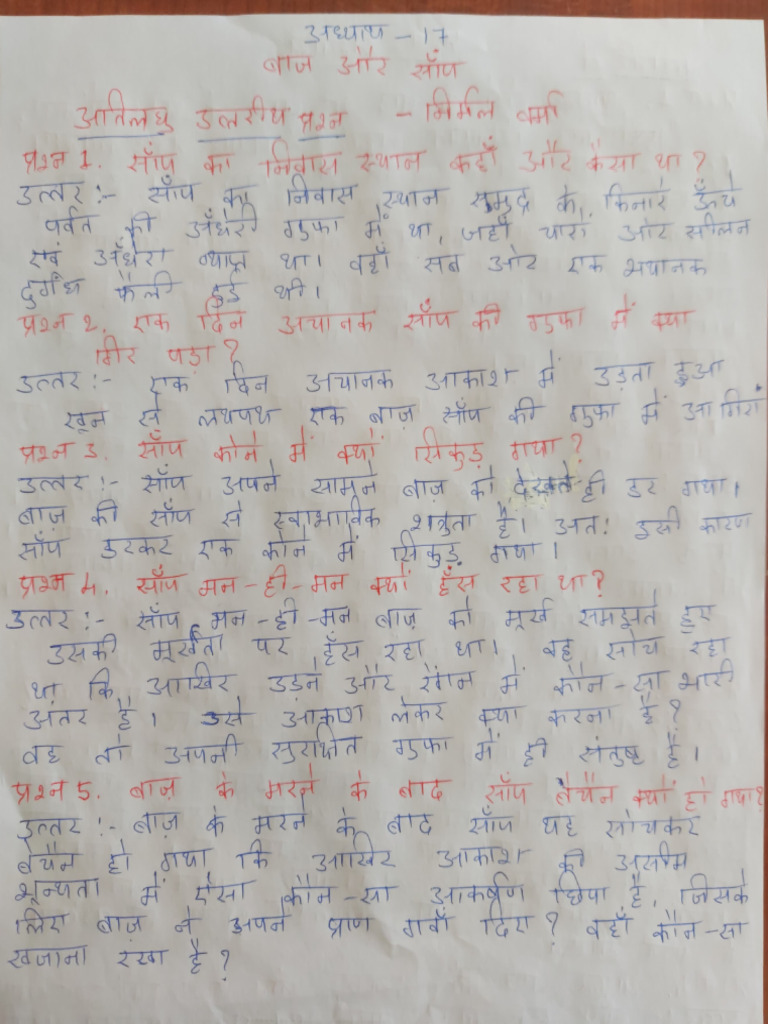 अध्याय - 17
बाज़ और साँप
अतिलघु उत्तरीय प्रश्न - निर्मल वर्मा
प्रश्न 1. साँप का निवास स्थान कहाँ और कैसा था ?
उत्तर :- साँप का निवास स्थान समुद्र के किनारे ऊँचे
पर्वत की अँधेरी गुफा में था, जहाँ चारों ओर सीलन
एवं अँधेरा व्याप्त था। वहाँ सब ओर एक भयानक
दुर्गंध फैली हुई थी।
प्रश्न 2. एक दिन अचानक साँप की गुफा में क्या
गिर पड़ा ?
उत्तर :- एक दिन अचानक आकाश में उड़ता हुआ
खून से लथपथ एक बाज़ साँप की गुफा में आ गिरा
प्रश्न 3. साँप कोने में क्यों सिकुड़ गया ?
उत्तर :- साँप अपने सामने बाज़ को देखते ही डर गया।
बाज़ की साँप से स्वाभाविक शत्रुता है। अतः इसी कारण
साँप डरकर एक कोने में सिकुड़ गया।
प्रश्न 4. साँप मन-ही-मन क्यों हँस रहा था?
उत्तर :- साँप मन-ही-मन बाज़ को मूर्ख समझते हुए
उसकी मूर्खता पर हँस रहा था। वह सोच रहा
था कि आखिर उड़ने और रेंगने में कौन-सा भारी
अंतर है। उसे आकाश लेकर क्या करना है?
वह तो अपनी सुरक्षित गुफा में ही संतुष्ट है।
प्रश्न 5. बाज़ के मरने के बाद साँप बेचैन क्यों हो गया?
उत्तर :- बाज़ के मरने के बाद साँप यह सोचकर
बेचैन हो गया कि आखिर आकाश की असीम
शून्यता में ऐसा कौन-सा आकर्षण छिपा है, जिसके
लिए बाज़ ने अपने प्राण गवाँ दिए ? वहाँ कौन-सा
खजाना रखा है ?